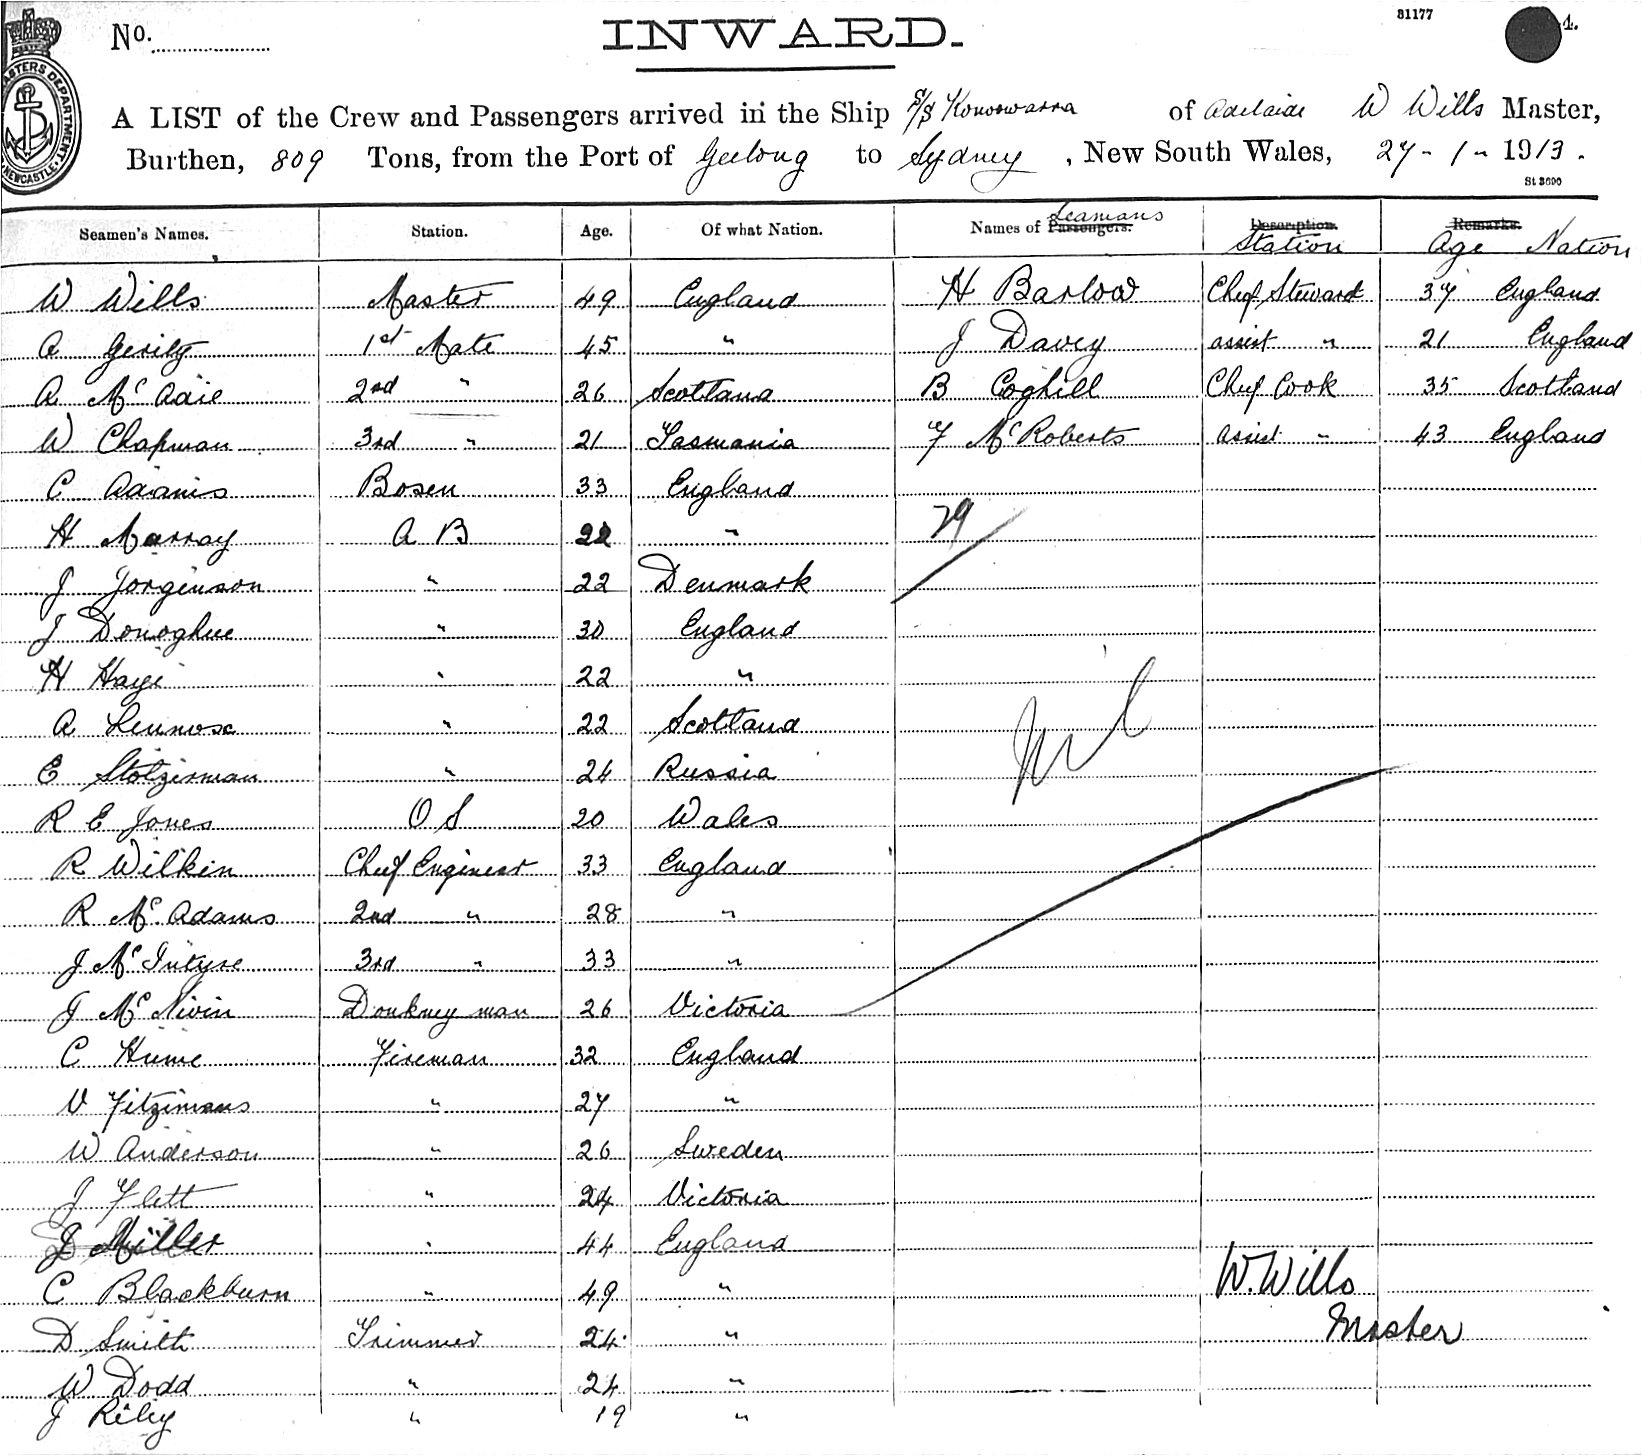 No.
INWARD.
31177
1.
MASTERS DEPARTMENT NEWCASTLE
A LIST of the Crew and Passengers arrived in the Ship S/S Konoowarra of Adelaide W Wills Master,
Burthen, 809 Tons, from the Port of Geelong to Sydney, New South Wales, 27-1-1913.
St 3600
Seamen's Names. Station. Age. Of what Nation. Names of Passengers. Seamans Description. Station Remarks. Age Nation
W Wills Master 49 England H Barlow Chief Steward 37 England
A Gerity 1st Mate 45 " J Davey assist " 21 England
A McAdie 2nd " 26 Scotland B Coghill Chief Cook 35 Scotland
W Chapman 3rd " 21 Tasmania F McRoberts assist " 43 England
C Adams Bosen 33 England
H Murray A B 22 " 29
J Jorginson " 22 Denmark
J Donoghue " 30 England
H Haye " 22 "
A Lennox " 22 Scotland Nil
E Stolzirman " 24 Russia
R E Jones O S 20 Wales
R Wilkin Chief Engineer 33 England
R McAdams 2nd " 28 "
J McIntyre 3rd " 33 "
J McNivin Donkney man 26 Victoria
C Hume Fireman 32 England
V Fitzimans " 27 "
W Anderson " 26 Sweden
J Flett " 24 Victoria
J Miller " 44 England
C Blackburn " 49 " W. Wills
D Smith Trimmer 24 " Master
W Dodd " 24 "
J Riley " 19 "